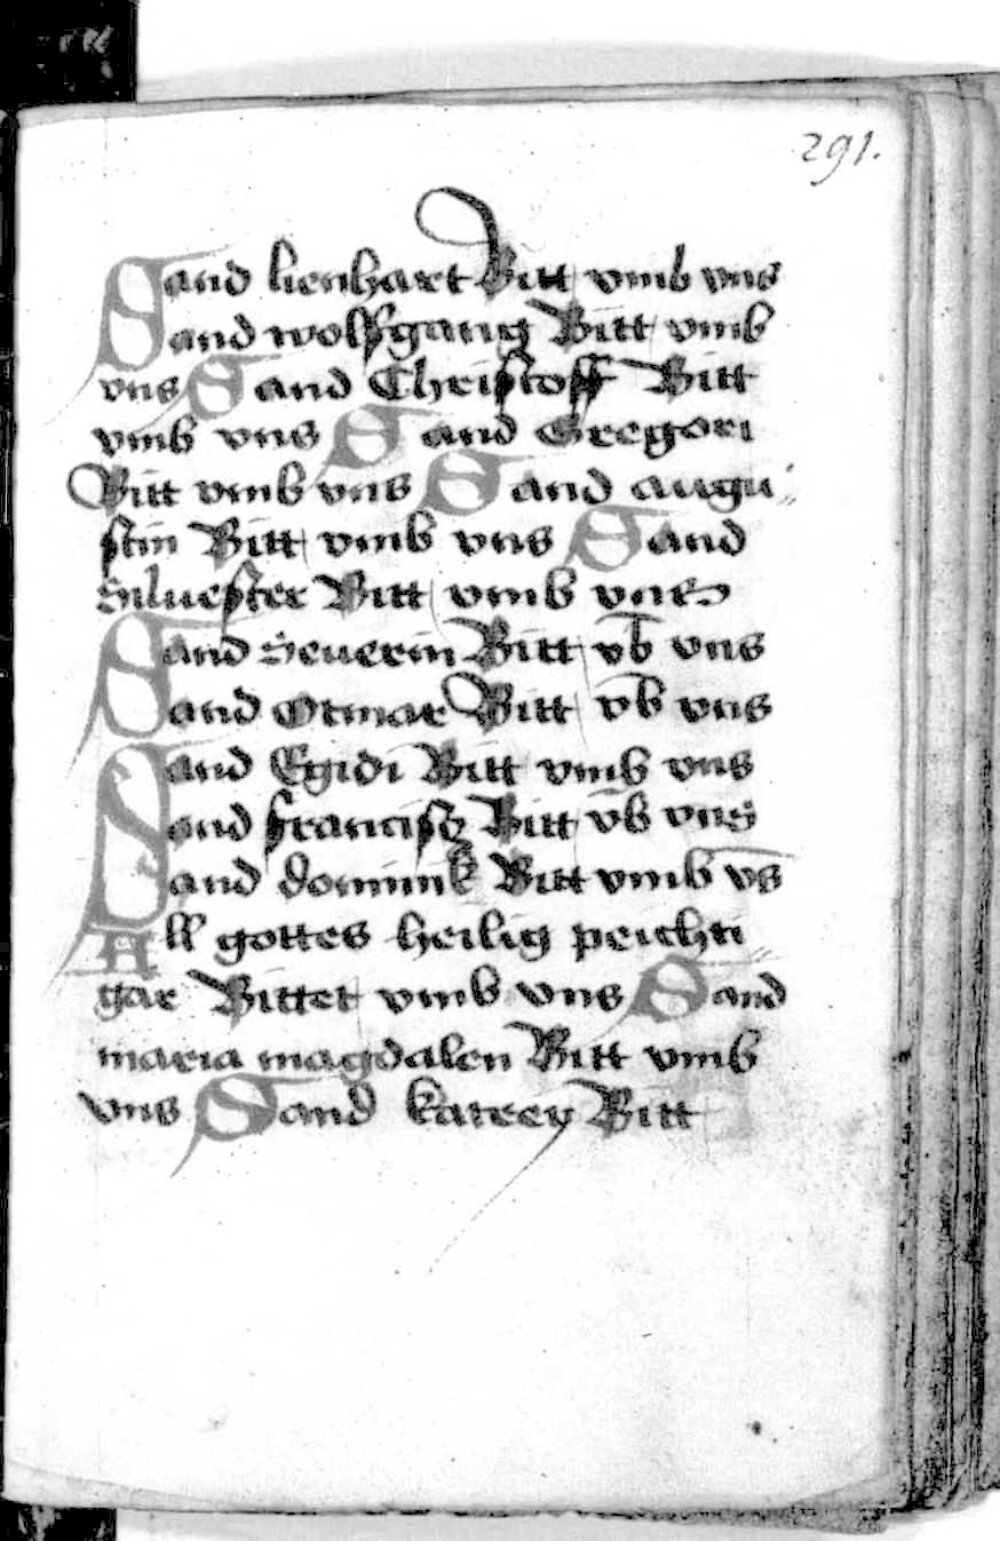 291.
Sand lienhart Bitt vmb vns
Sand wolfgang Bitt vmb
vns Sand Christoff Bitt
vmb vns Sand Gregori
Bitt vmb vns Sand augu
stin Bitt vmb vns Sand
Siluester Bitt vmb vns
Sand Seuerin Bitt vb̄ vns
Sand Otmar Bitt vb̄ vns
Sand Egidi Bitt vmb vns
Sand francisz Bitt vb̄ vns
Sand dominik Bitt vmb vs̄
All gottes heilig peichti
gar Bittet vmb vns Sand
maria magdalen Bitt vmb
vns Sand katrey Bitt